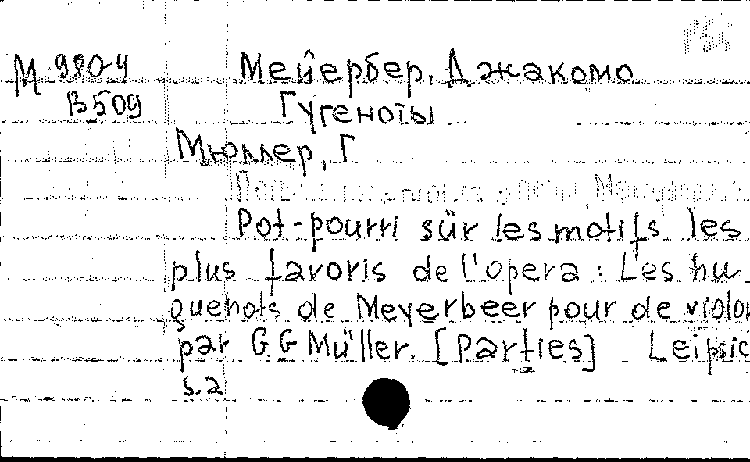 М 980-4 Мейербер, Джакомо
В 509 Гугеноты
Мюллер, Г
Pot-pourri sür les motifs les
plus favoris de l'opera : Les hu
guenots de Meyerbeer pour de violon
par G G Müller. [Parties] Leipsic
s.a